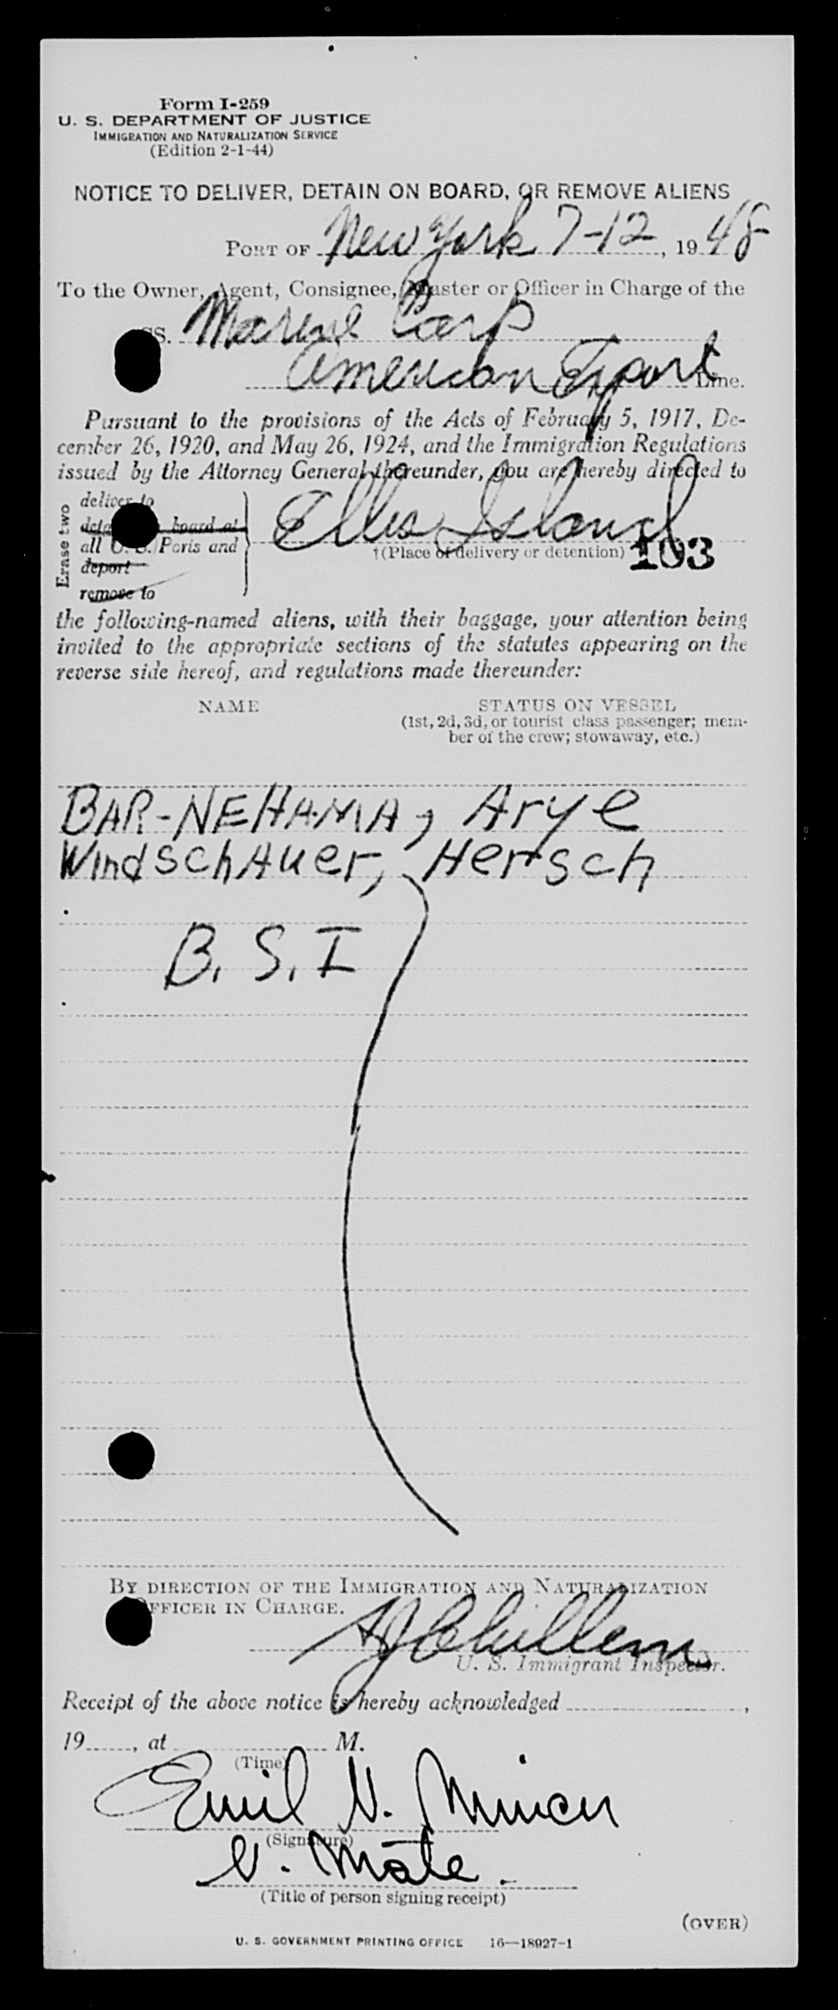 Form I-259
U. S. DEPARTMENT OF JUSTICE
IMMIGRATION AND NATURALIZATION SERVICE
(Edition 2-1-44)
NOTICE TO DELIVER, DETAIN ON BOARD, OR REMOVE ALIENS
PORT OF New York 7-12, 1948
To the Owner, Agent, Consignee, Master or Officer in Charge of the
SS. Marine Carp
American Export Line.
Pursuant to the provisions of the Acts of February 5, 1917, De-
cember 26, 1920, and May 26, 1924, and the Immigration Regulations
issued by the Attorney General thereunder, you are hereby directed to
Erase two
deliver to
board at
all U. S. Ports and
deport
remove to
Ellis Island
†(Place of delivery or detention) 103
the following-named aliens, with their baggage, your attention being
invited to the appropriate sections of the statutes appearing on the
reverse side hereof, and regulations made thereunder:
NAME STATUS ON VESSEL
(1st, 2d, 3d, or tourist class passenger; mem-
ber of the crew; stowaway, etc.)
BAR-NEHAMA, Arye
WindSchAuer, Hersch
B. S. I
BY DIRECTION OF THE IMMIGRATION AND NATURALIZATION
OFFICER IN CHARGE.
U. S. Immigrant Inspector.
Receipt of the above notice is hereby acknowledged ,
19 , at M.
(Time)
Emil V.
(Signature)
V. Mate.
(Title of person signing receipt)
(OVER)
U. S. GOVERNMENT PRINTING OFFICE 16—18927-1